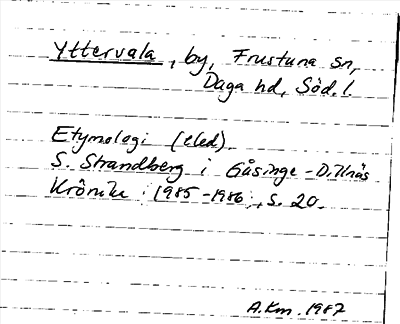 Yttervala, by, Frustuna sn,
Daga hd, Söd. l.
Etymologi (eled).
S. Strandberg i Gåsinge-Dillnäs
Krönika 1985-1986, s. 20.
A.Km. 1987